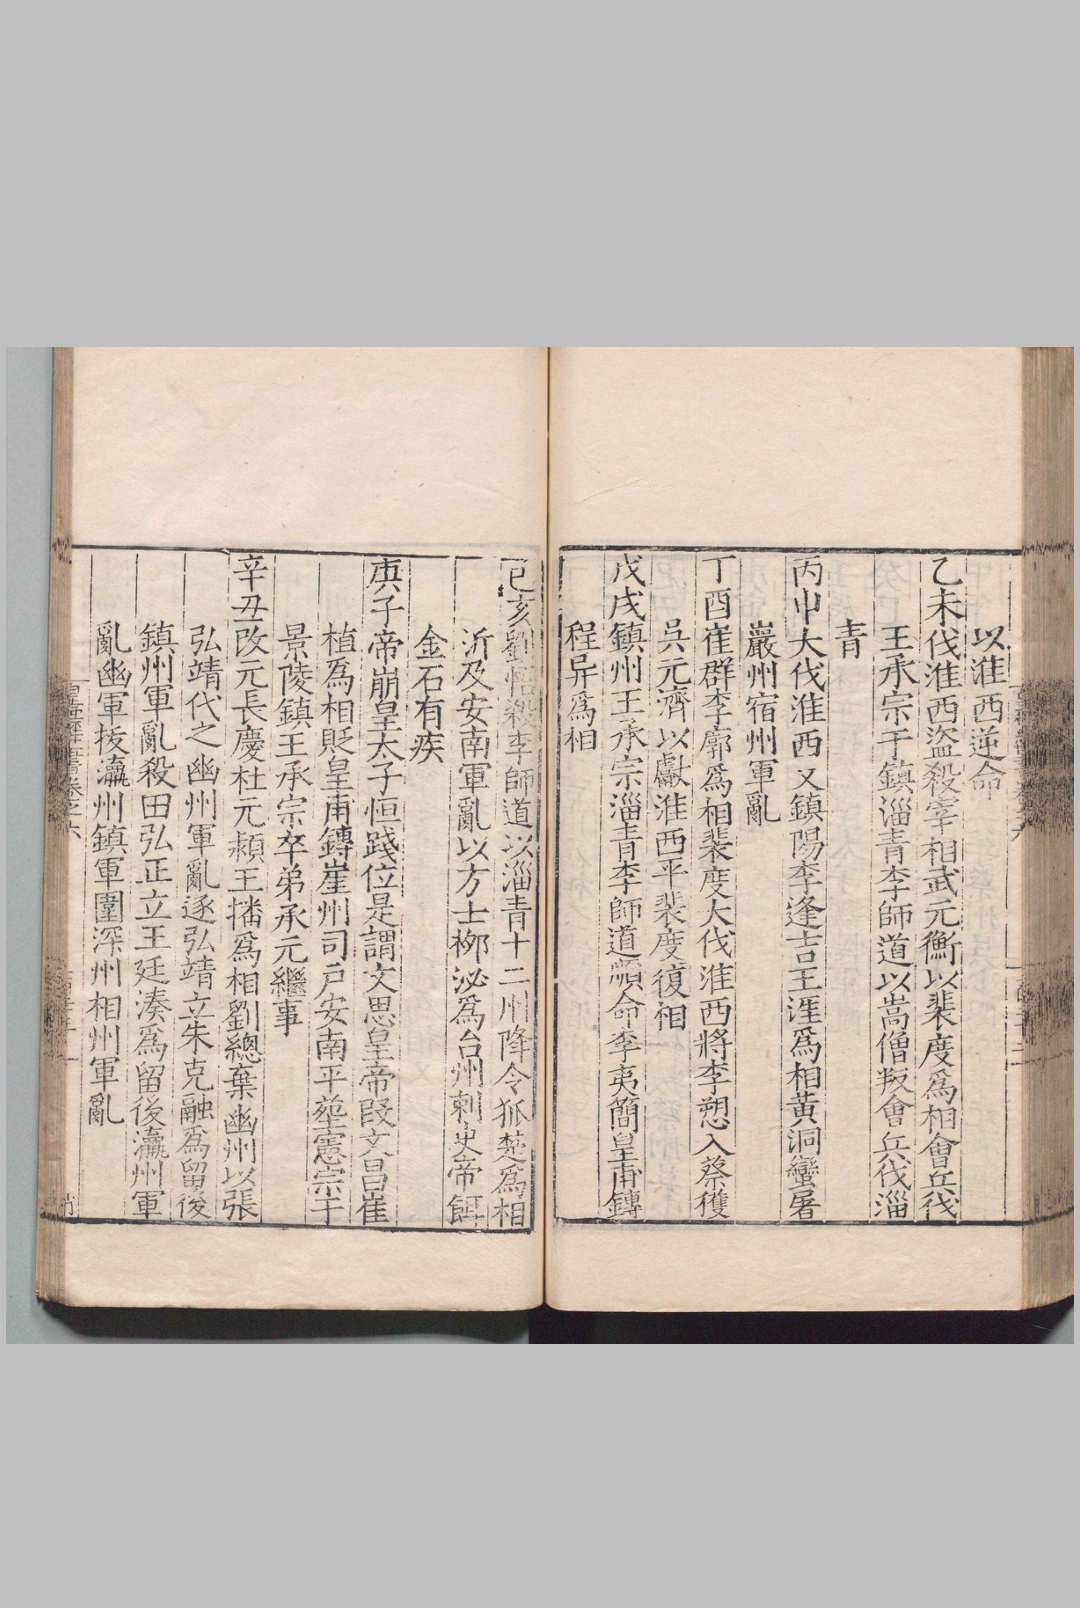 以淮西逆命
乙未伐淮西盜殺宰相武元衡以裴度爲相會兵伐
王承宗于鎮淄青李師道以嵩僧叛會兵伐淄
青
丙申大伐淮西又鎮陽李逢吉王涯爲相黃洞蠻屠
巖州宿州軍亂
丁酉崔群李鄘爲相裴度大伐淮西將李愬入蔡獲
吳元濟以獻淮西平裴度復相
戊戌鎮州王承宗淄青李師道順命李夷簡皇甫鏄
程异爲相
己亥劉悟殺李師道以淄青十二州降令狐楚爲相
沂及安南軍亂以方士栁泌爲台州刺史帝餌
金石有疾
庚子帝崩皇太子恒踐位是謂文思皇帝段文昌崔
植爲相貶皇甫鏄崖州司戶安南平葬憲宗于
景陵鎮王承宗卒弟承元繼事
辛丑改元長慶杜元頴王播爲相劉總棄幽州以張
弘靖代之幽州軍亂逐弘靖立朱克融爲留後
鎮州軍亂殺田弘正立王廷湊爲留後瀛州軍
亂幽軍捘瀛州鎮軍圍深州相州軍亂
皇極經世書卷之六